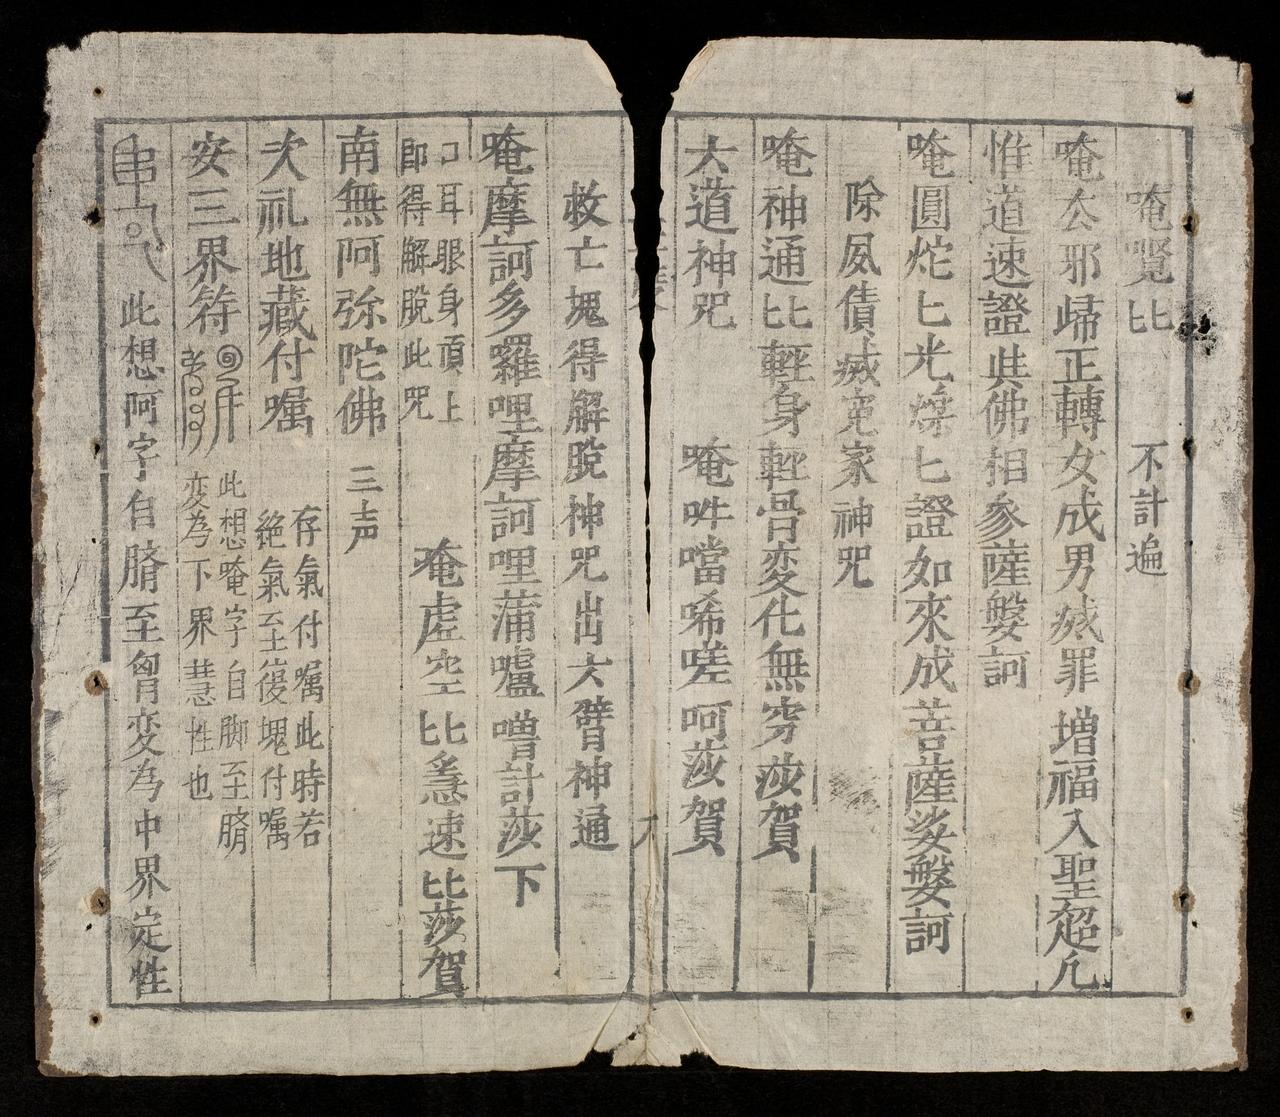 唵䶩匕　不計遍
唵厺邪歸正轉女成男㓕罪增福入聖超凡
惟道速證共佛相參薩䯈訶
唵圓炨匕光㷛匕證如來成菩薩娑䯈訶
除夙債㓕冤家神咒
唵神通匕輕身輕骨変化無穷莎賀
大道神咒　唵吽噹唏嗟呵莎賀
救亡塊得解脫神咒出大臂神通
唵摩訶多羅哩摩訶哩蒲嚧噌計莎下
口耳眼身頂上
即得解脫此咒
唵虛空比急速比莎賀
南無阿弥陀佛　三声
次礼地藏付嘱
存氣付嘱此時若
絶氣至後塊付嘱
安三界符
此想唵字自脚至臍
変為下界慧性也
此想呵字自臍至胷変為中界㝎性